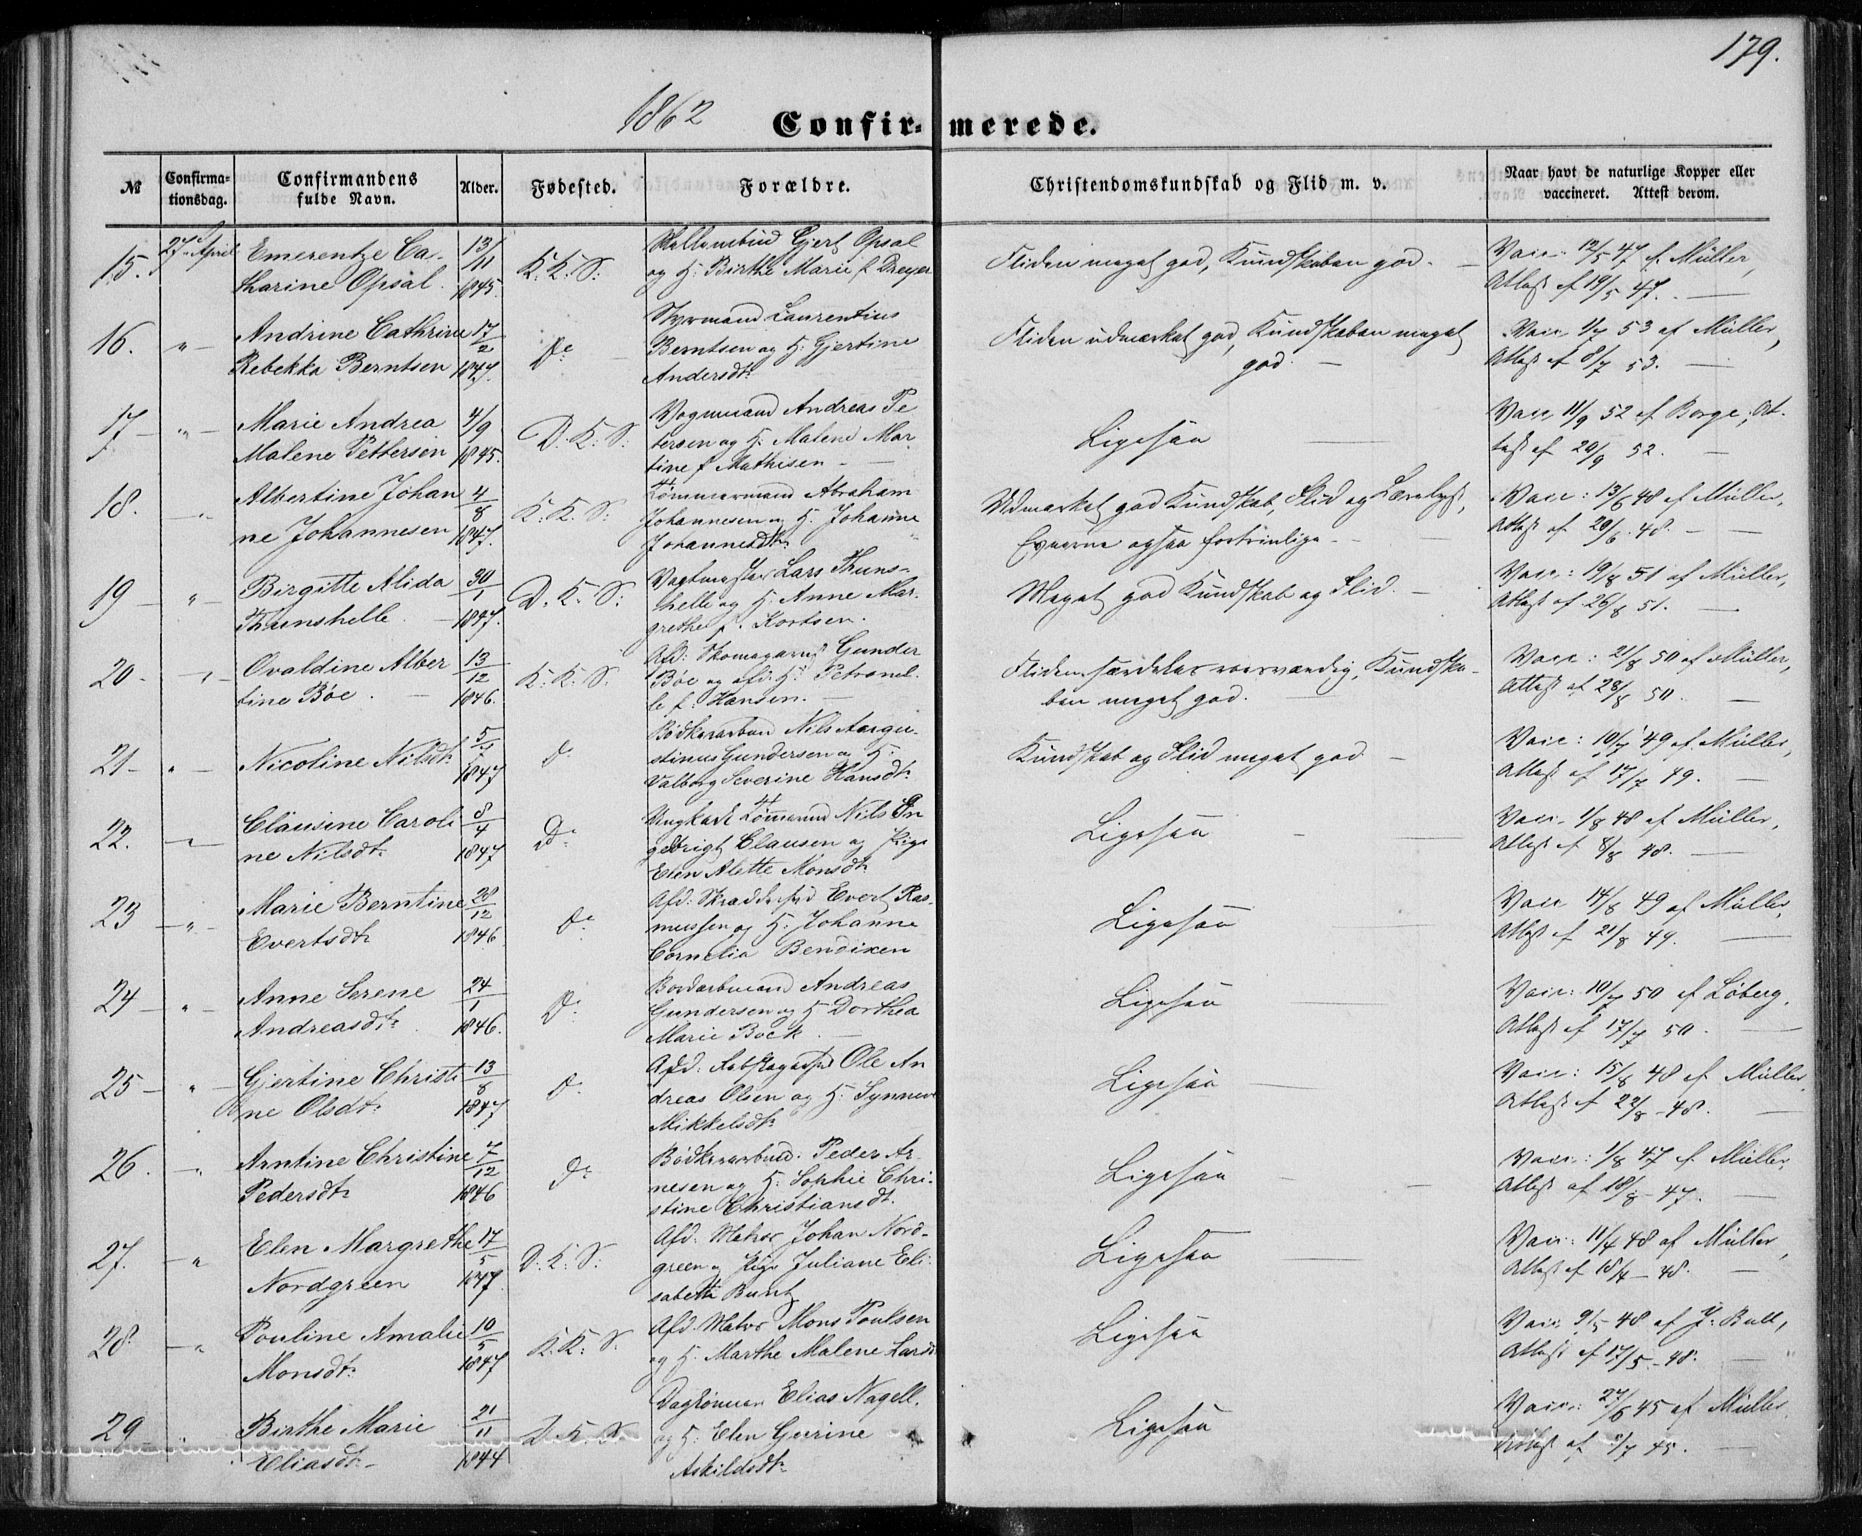 179.
1862
Confirmerede.
№
Confirmationsdag.
Confirmandens fulde Navn.
Alder.
Fødested.
Forældre.
Christendomskundskab og Flid m. v.
Naar havt de naturlige Kopper eller vaccineret. Attest derom.
15. 27. April Emerentze Ca- 13/11 Gjert Opsal
tharine Opsal. 1845. K. K. S. og H. Birthe Marie f. Dreyer
Fliden meget god, Kundskaben god. Vacc. 12/5 47 af Müller,
Attest af 19/5 47.
16. " Andrine Cathrine 17/2 Styrmand Laurentius
Rebekka Berntsen 1847. Do Berntsen og H. Gjertine
Andersdtr
Fliden udmærket god, Kundskaben meget
god. Vacc. 1/7 53 af Müller,
Attest af 8/7 53.
17 " Marie Andrea 4/9 Vognmand Andreas Pe
Malene Pettersen 1845. D. K. S. tersen og H. Malene Mar
tine f. Mathisen
Ligesaa Vacc 11/9 52 af Borge, At-
test af 20/9 52.
18. " Albertine Johan 4/8 Tømmermand Abraham
ne Johannesen 1847. K. K. S. Johannesen og H. Johanne
Johannesdtr
Udmærket god Kundskab, Flid og Lærelyst,
Evnerne ogsaa fortrinlige. Vacc: 13/6 48 af Müller,
Attest af 20/6 48.
19 " Birgitte Alida 30/1 Vagtmester Lars Thuns-
Thunshelle. 1847. D. K. S. helle og H. Anne Mar-
grethe f. Kortsen.
Meget god Kundskab og Flid. Vacc: 19/8 51 af Müller,
Attest af 26/8 51.
20. " Ovaldine Alber 13/12 Afd: Skomagersv. Gunder
tine Böe. 1846. K. K. S. Böe og afd. H. Petronel-
le f. Hansen.
Fliden særdeles roesværdig, Kundska-
ben meget god. Vacc: 21/8 50 af Müller,
Attest af 28/8 50.
21 " Nicoline Nilsdtr 5/7 1847 do Bödkerarbmd Nils Augu-
stinus Gundersen og H.
Valborg Severine Hansdtr
Kundskab og Flid meget god Vacc: 10/7 49 af Müller,
Attest af 17/7 49.
22. " Clausine Caroli 8/4 Ungkarl Tømmermd Nils In
ne Nilsdtr 1847 Do gebrigt Clausen og Pige
Elen Alette Monsdtr
Ligesaa Vacc. 1/8 48 af Müller,
Attest af 8/8 48.
23 " Marie Berntine 28/12 Afd: Evert Ras-
Evertsdtr 1846 do mussen og H. Johanne
Cornelia Bendixen
Ligesaa Vacc 14/8 49 af Müller,
Attest af 21/8 49.
24 " Anne Serene 24/1 Andreas
Andreasdtr 1846. Do Gundersen og H. Dorthea
Marie Bock
Ligesaa Vacc: 10/7 50 af Löberg,
Attest af 17/7 50.
25 " Gjertine Christi 13/8 Afd. Ole An
ne Olsdtr 1847 do dreas Olsen og H. Synneve
Mikkelsdtr
Ligesaa Vacc: 15/8 48 af Müller,
Attest af 22/8 - 48.
26. " Arntine Christine 7/12 Bödkerarbmd. Peder Ar-
Pedersdtr 1846 do nesen og H. Sophie Chri-
stine Christiansdtr.
Ligesaa Vacc: 1/8 47 af Müller,
Attest af 18/8 - 47.
27. " Elen Margrethe 17/5 Afd. Matros Johan Nord-
Nordgreen 1847. D. K. S. green og Pige Juliane Eli-
sabeth Buntz
Ligesaa Vacc: 11/4 48 af Müller,
Attest af 18/4 - 48.
28. " Pouline Amalie 10/5 Afd. Matros Mons Poulsen
Monsdtr 1847 K. K. S. og H. Marthe Malene Larsdtr
Ligesaa Vacc. 9/5 48 af J. Bull,
Attest af 17/5 - 48.
29 " Birthe Marie 21/11 Daglønner Elias Nagell.
Eliasdtr 1844 D. K. S. og H. Elen Gurine
Askildsdtr
Ligesaa Vacc: 27/6 45 af Müller.
Attest af 5/7 45.